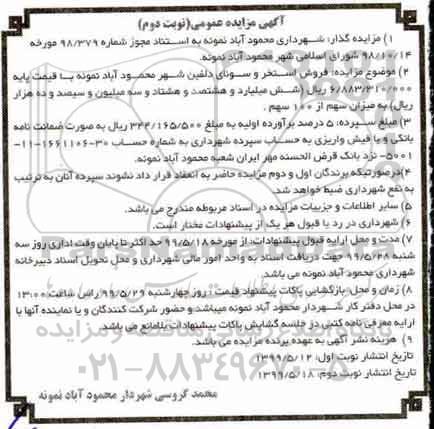 آگهی مزایده عمومی(نوبت دوم)
۱) مزایده گذار: شهرداری محمود آباد نمونه به استناد مجوز شماره ۹۸/۳۷۹ مورخه
۹۸/۱۰/۱۴ شورای اسلامی شهر محمود آباد نمونه.
۲) موضوع مزایده: فروش استخر و سونای دلفین شهر محمود آباد نمونه با قیمت پایه
۶/۸۸۳/۳۱۰/۰۰۰ ریال (شش میلیارد و هشتصد و هشتاد و سه میلیون و سیصد و ده هزار
ریال) به میزان سهم از ۱۰۰ سهم.
۳) مبلغ سپرده: ۵ درصد برآورده اولیه به مبلغ ۳۴۴/۱۶۵/۵۰۰ ریال به صورت ضمانت نامه
بانکی و یا فیش واریزی به حساب سپرده شهرداری به شماره حساب ۳۰-۱۶۶۱۱۰۶-۱۱-
۵۰۰۱- نزد بانک قرض الحسنه مهر ایران شعبه محمود آباد نمونه.
۴)درصورتیکه برندگان اول و دوم مزایده حاضر به انعقاد قرار داد نشوند سپرده آنان به ترتیب
به نفع شهرداری ضبط خواهد شد.
۵) سایر اطلاعات و جزییات مزایده در اسناد مربوطه مندرج می باشد.
۶) شهرداری در رد یا قبول هر یک از پیشنهادات مختار است.
۷) مدت و محل ارایه قبول پیشنهادات: از مورخه ۹۹/۵/۱۸ حد اکثر تا پایان وقت اداری روز سه
شنبه ۹۹/۵/۲۸ جهت دریافت اسناد به واحد امور مالی شهرداری و محل تحویل اسناد دبیرخانه
شهرداری محمود آباد نمونه می باشد.
۸) زمان و محل بازگشایی پاکات پیشنهاد قیمت: روز چهارشنبه ۹۹/۵/۲۹ راس ساعت ۱۳:۰۰
در محل دفتر کار شهردار محمود آباد نمونه میباشد و حضور شرکت کنندگان و یا نماینده آنها با
ارایه معرفی نامه کتبی در جلسه گشایش پاکات پیشنهادات بلامانع می باشد.
۹) هزینه نشر آگهی به عهده برنده مزایده می باشد.
تاریخ انتشار نوبت اول: ۱۳۹۹/۵/۱۲
تاریخ انتشار نوبت دوم: ۱۳۹۹/۵/۱۸
محمد گروسی شهردار محمود آباد نمونه